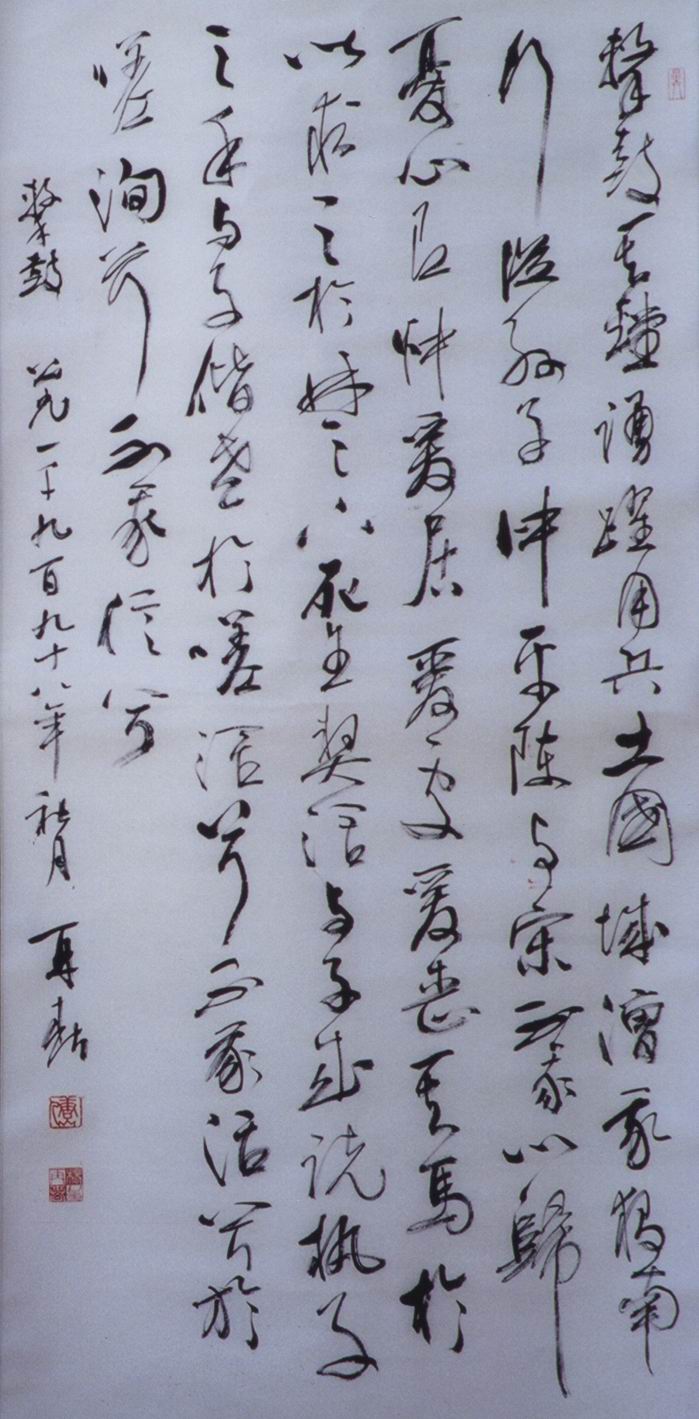 擊鼓其鏜踊躍用兵土國城漕我獨南
行從孫子仲平陳与宋不我以歸
憂心有忡爰居爰處爰喪其馬於
以求之於林之下死生契濶与子成說執子
之手与子偕老於嗟濶兮不我活兮於
嗟洵兮不我信兮
擊鼓 公元一千九百九十八年 月